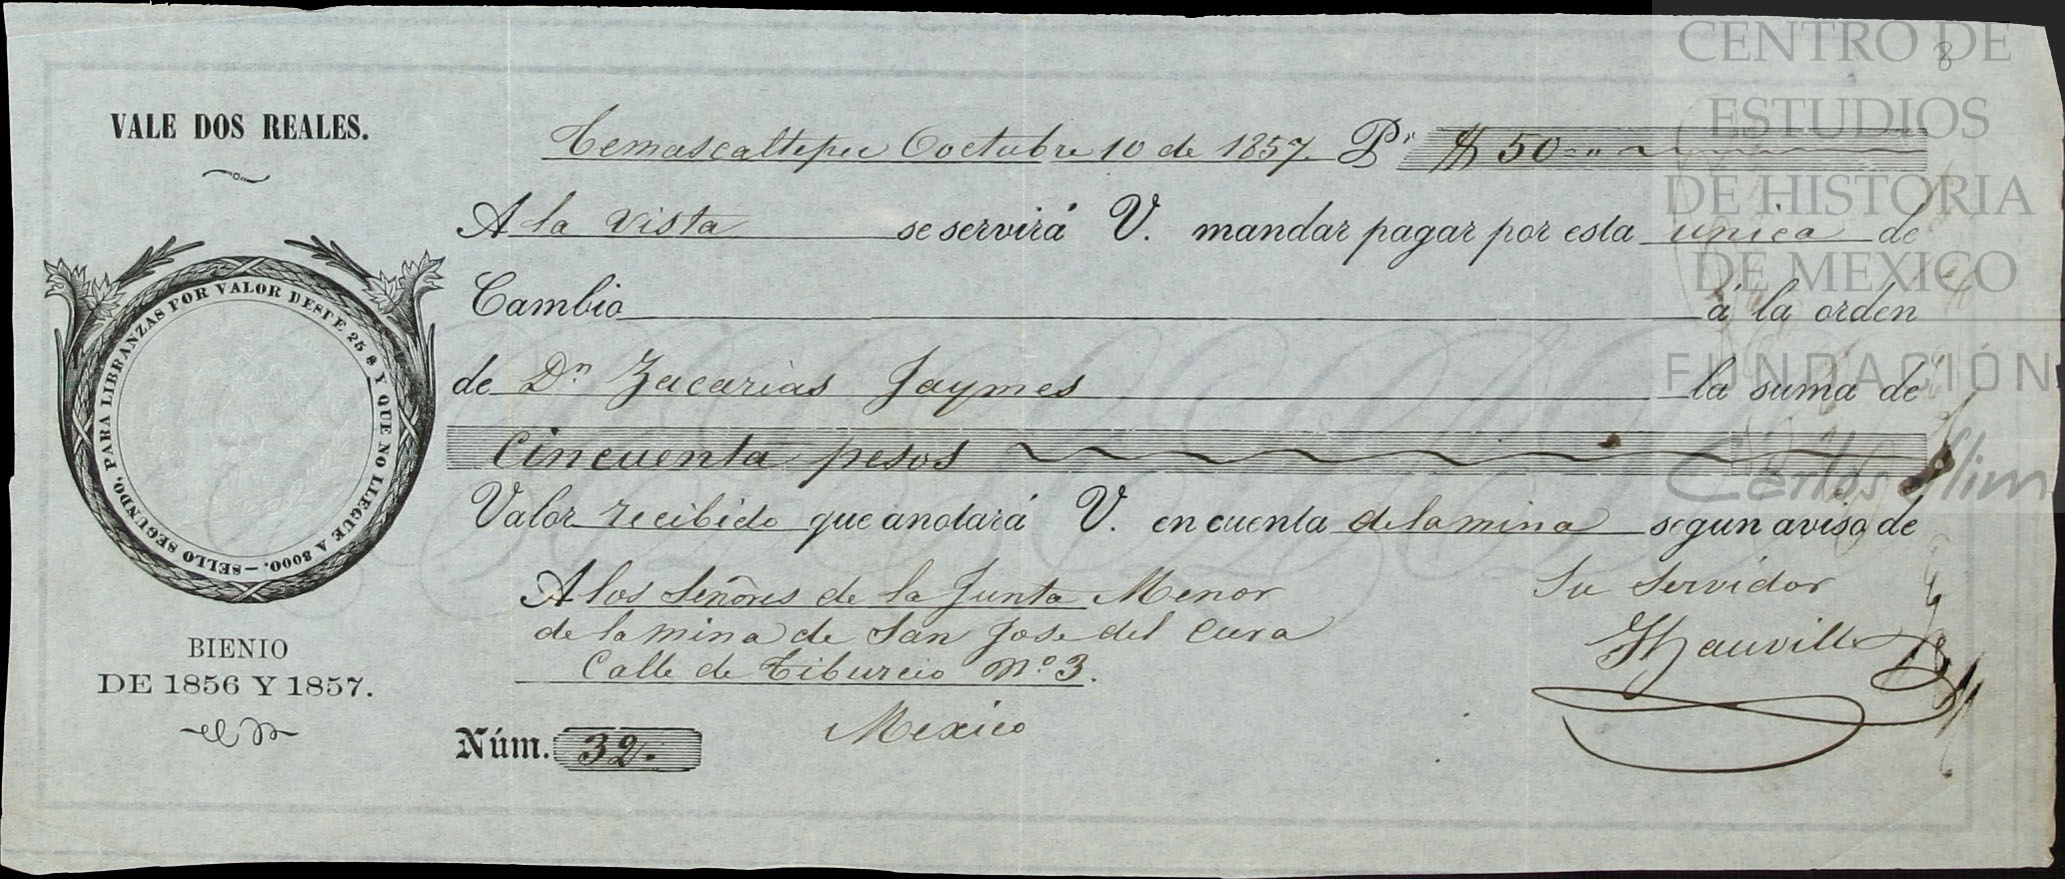 VALE DOS REALES.
SELLO SEGUNDO, PARA LIBRANZAS POR VALOR DESDE 25 $ Y QUE NO LLEGUE A 3000.
BIENIO
DE 1856 Y 1857.
Temascaltepec Ooctubre 10 de 1857. Pr. $ 50
A la vista se servirá V. mandar pagar por esta unica de
Cambio á la orden
de Dn Zacarias Jaymes la suma de
Cincuenta pesos
Valor recibido que anotará V. en cuenta de la mina segun aviso de
Su Servidor
A los Señores de la Junta Menor
de la mina de San Jose del Cura
Calle de Tiburcio No. 3.
Mexico
Núm. 32.
8
CENTRO DE
ESTUDIOS
DE HISTORIA
DE MEXICO
FUNDACIÓN
Carlos Slim